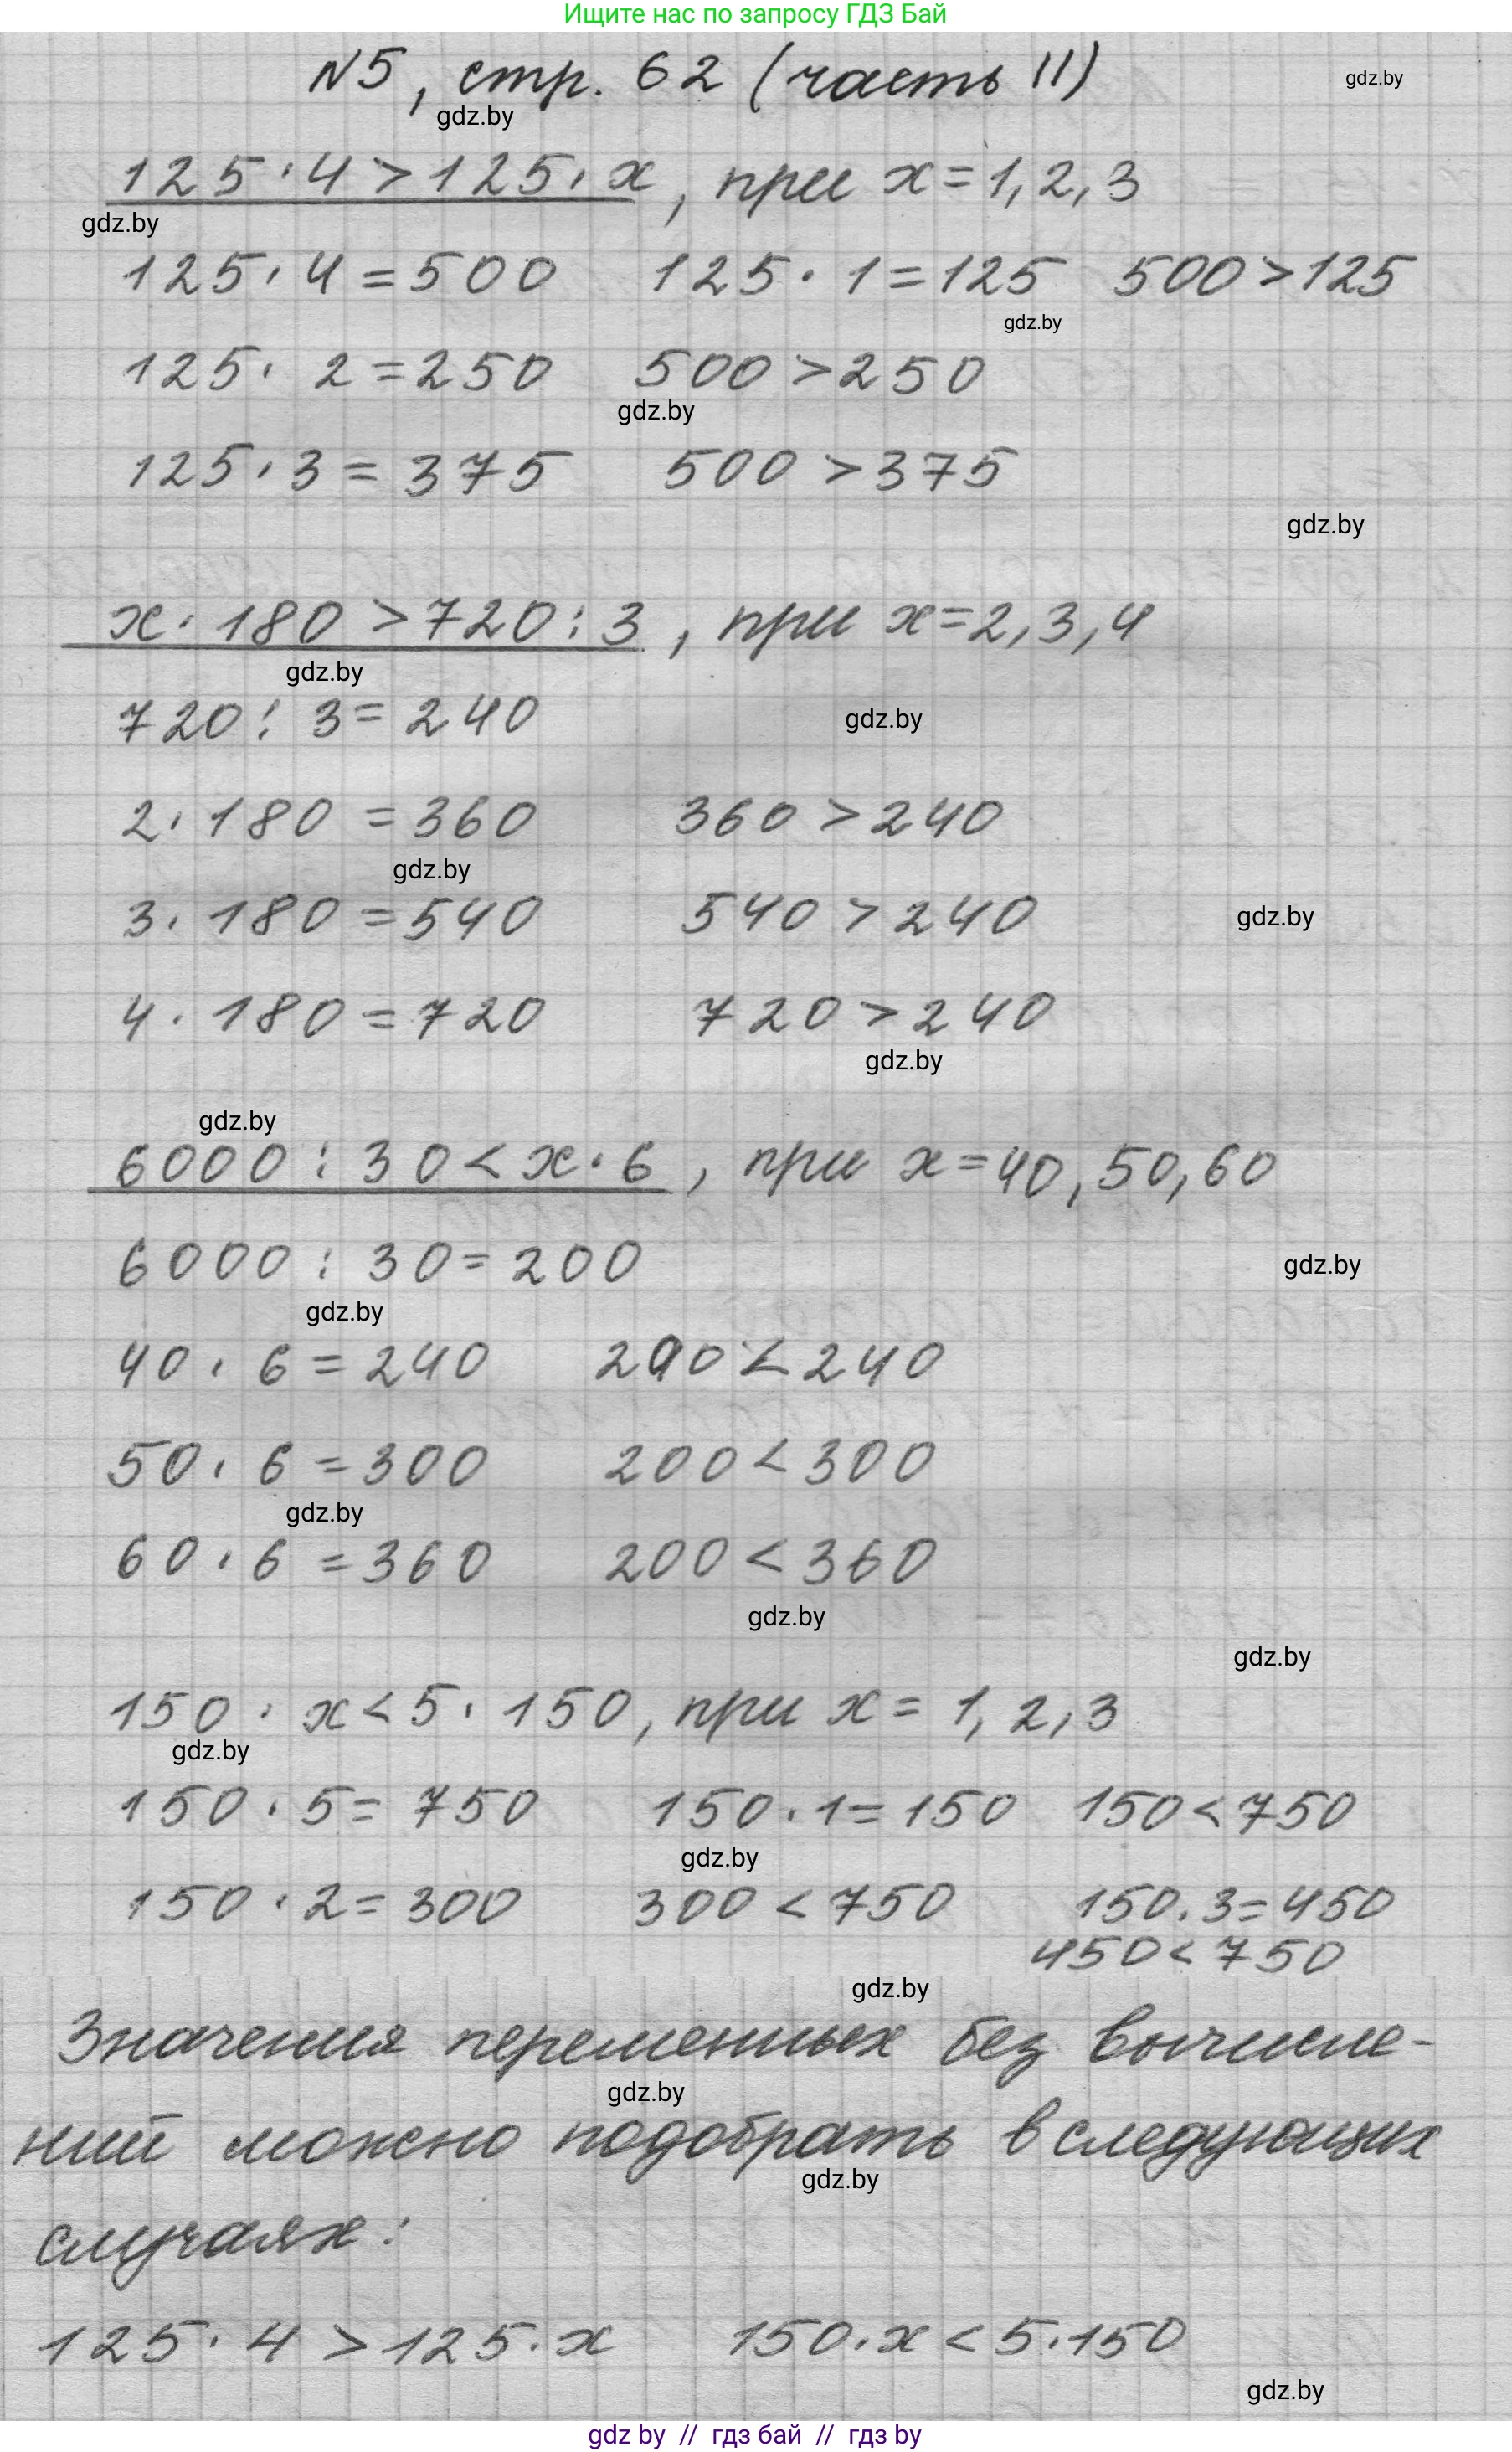 Ищите нас по запросу ГДЗ Бай
№5, стр. 62 (часть II)
gdz.by
gdz.by
125 · 4 > 125 · x, при x = 1, 2, 3
gdz.by
125 · 4 = 500 125 · 1 = 125 500 > 125
gdz.by
125 · 2 = 250 500 > 250
gdz.by
125 · 3 = 375 500 > 375
gdz.by
x · 180 > 720 : 3, при x = 2, 3, 4
gdz.by
720 : 3 = 240
gdz.by
2 · 180 = 360 360 > 240
gdz.by
3 · 180 = 540 540 > 240
gdz.by
4 · 180 = 720 720 > 240
gdz.by
gdz.by
6000 : 30 < x · 6, при x = 40, 50, 60
6000 : 30 = 200
gdz.by
gdz.by
40 · 6 = 240 200 < 240
50 · 6 = 300 200 < 300
gdz.by
60 · 6 = 360 200 < 360
gdz.by
gdz.by
150 · x < 5 · 150, при x = 1, 2, 3
gdz.by
150 · 5 = 750 150 · 1 = 150 150 < 750
gdz.by
150 · 2 = 300 300 < 750 150 · 3 = 450
450 < 750
gdz.by
Значения переменных без вычисле-
gdz.by
ний можно подобрать в следующих
gdz.by
случаях:
125 · 4 > 125 · x 150 · x < 5 · 150
gdz.by
gdz by // гдз бай // гдз by